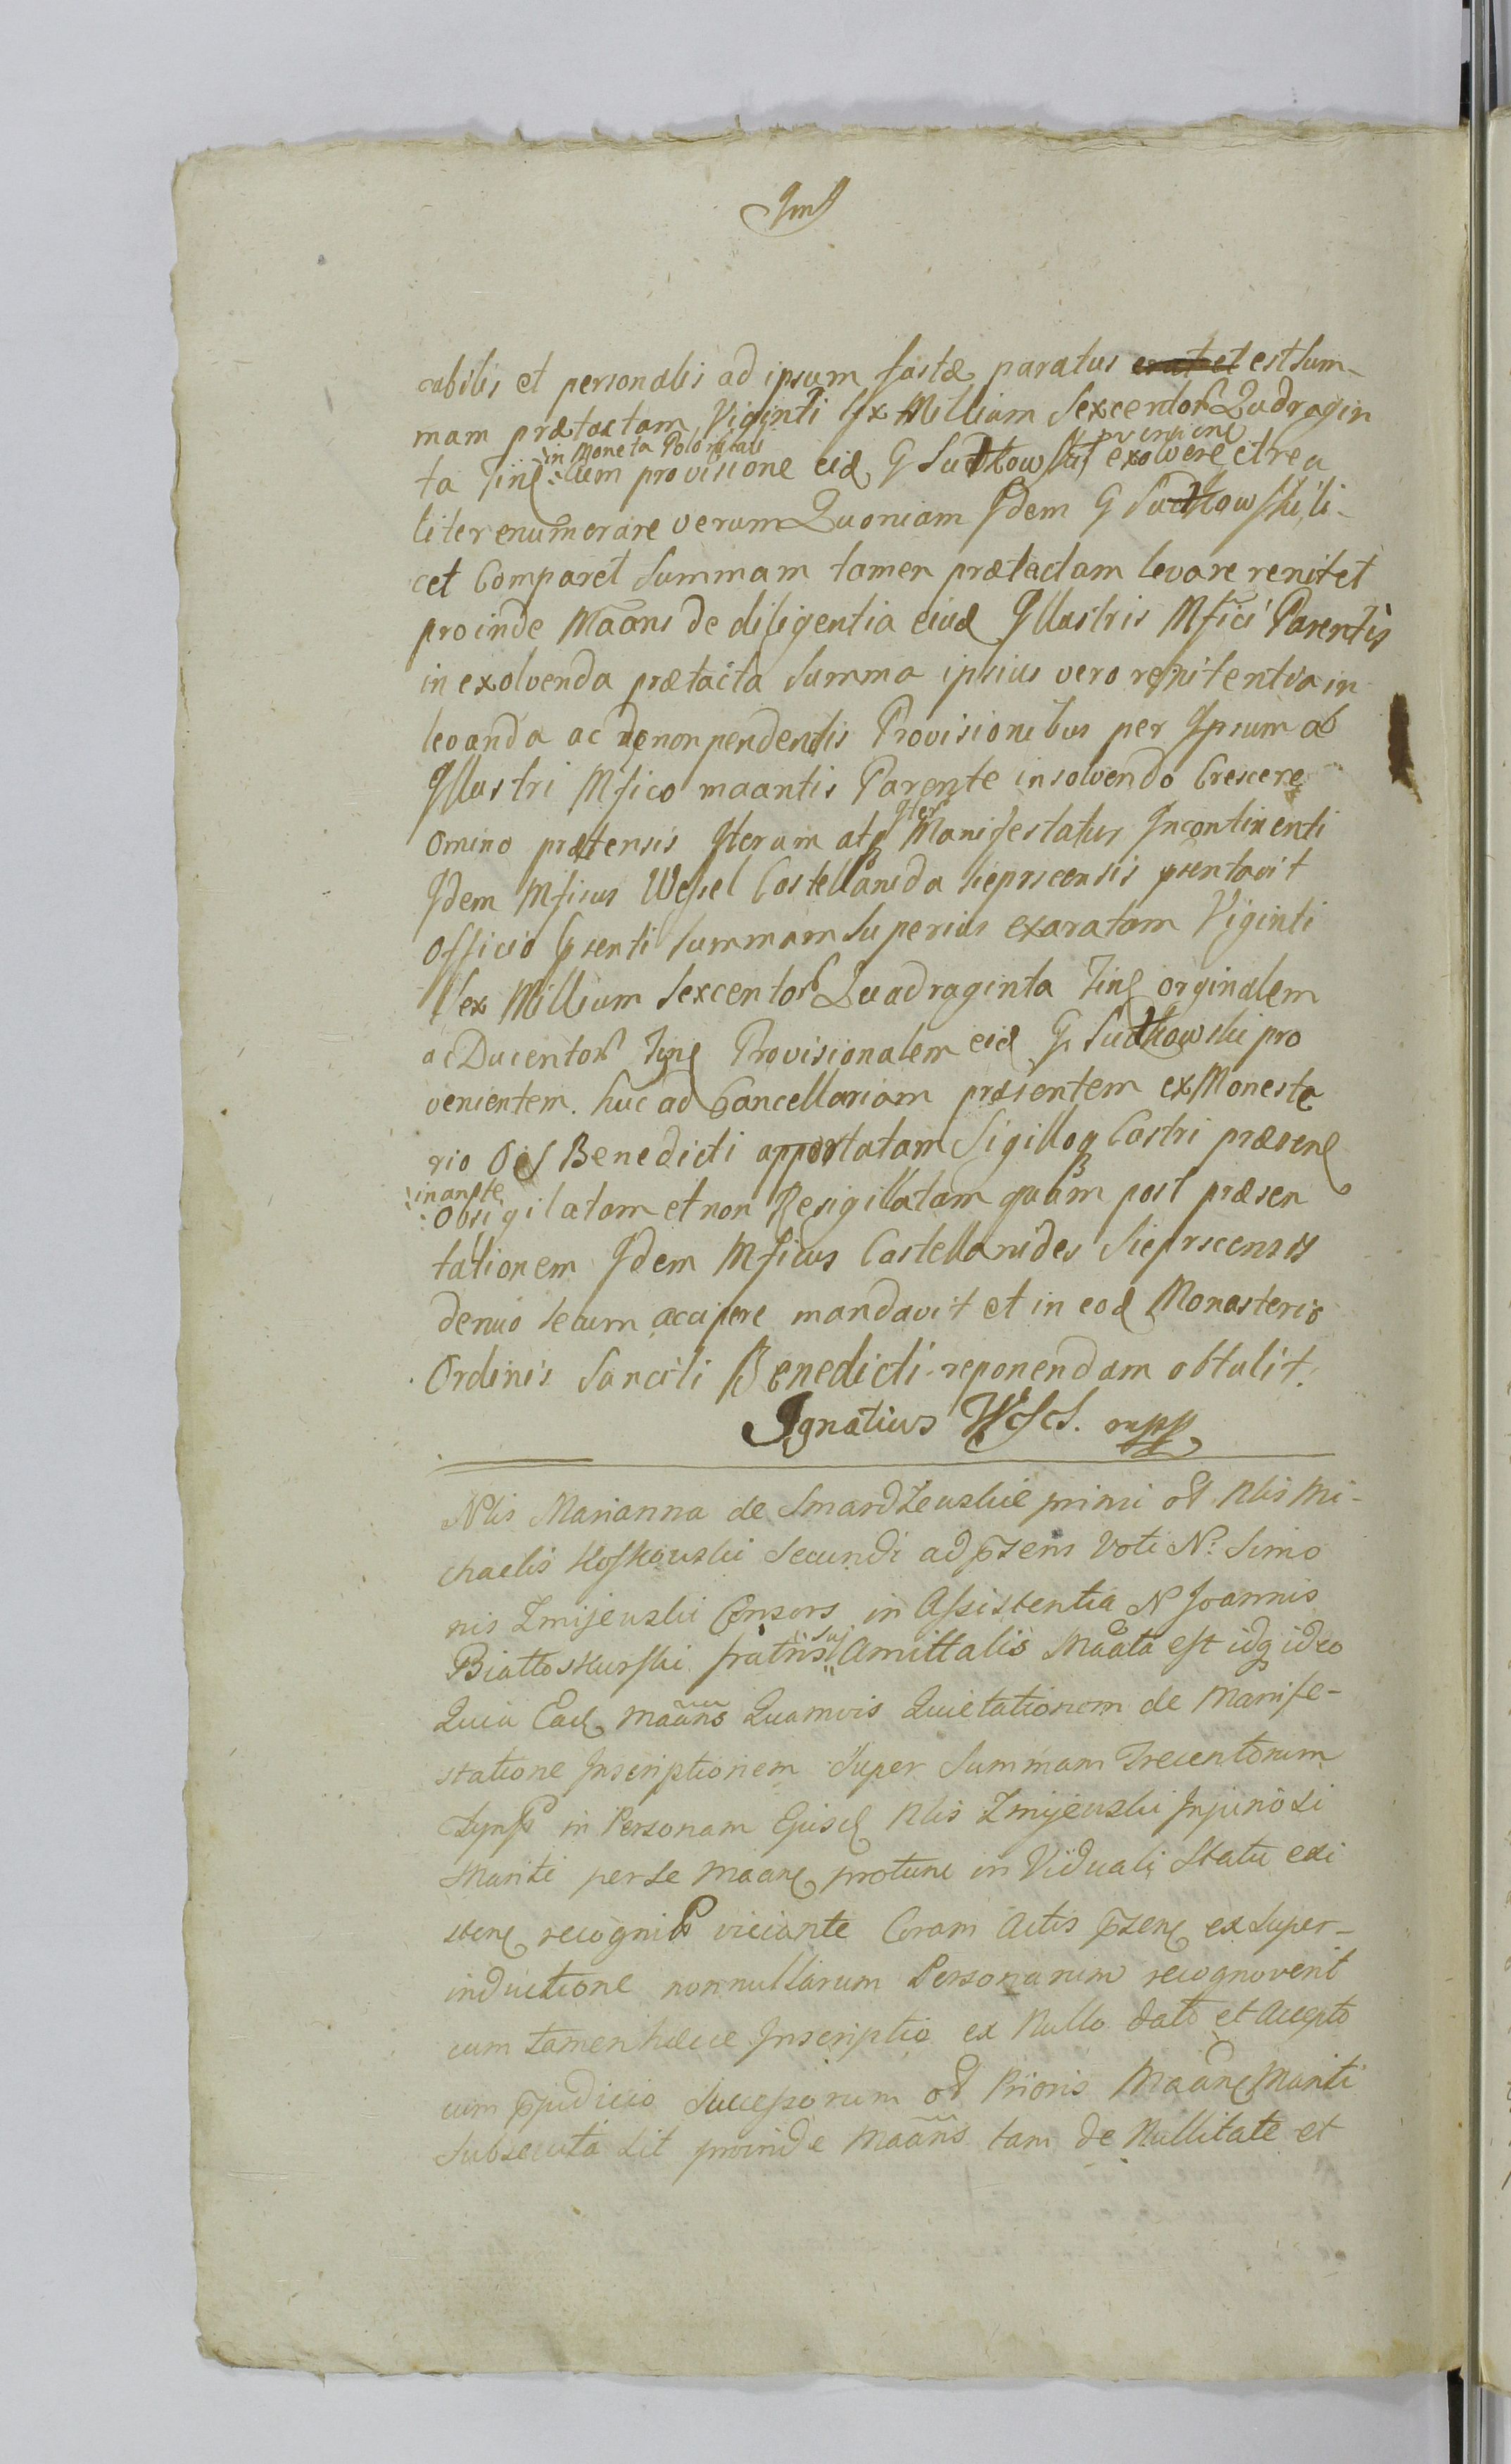 abilis et personalis ad ipsum factæ paratus erat et est sum-
mam prætactam Viginti Sex Millium Sexcentor Quadragin
in Moneta Polonicali
ta Tinf cum provisione eid G Sudkowski exolvere et rea
liter enumerare verum Quoniam Idem G Sudkowski li-
cet Comparet Summam tamen prætactam levare renitet
proinde Maans de diligentia eiud Illustris Mfici Parentis
in exolvenda prætacta Summa ipsius vero renitentia in
levanda ac de non pendendis Provisionibus per Ipsum ab
Illustri Mfico maantis Parente in solvendo Crescere
omino prætensis Iterum atq Iter Manifestatur Incontinenti
Idem Mficus Wessel Castellanida Sieprscensis psentavit
Officio Psenti Summam Superius exaratam Viginti
Sex Millium Sexcentor Quadraginta Tinf orginalem
ac Ducentor Tynf Provisionalem eid G Sudkowski pro
venientem huc ad Cancellariam præsentem ex Moneste
rio Benedicti apportatam Sigilloq Castri præsenē
in anpte
Obsigilatam et non Resigillatam quam post præsen
tationem Idem Mficus Castellanides Sieprscensis
denuo secum accipere mandavit et in eod Monasterio
Ordinis Sancti Benedicti reponendam obtulit.
Ignatius mpp
Nlis Marianna de Smardzewskie primi ol Nlis Mi-
chaelis Kosskowski Secundi ad p̄sens Voti N. Simo
nis Zmijewski Consors in Assistentia N Joannis
Białłoskurski fratris Sui Amittalis Maata est idq ideo
Quia Ead maans Quamvis Quietationem de Manife-
statione Inscriptionem Super Summam Trecentorum
Tynf in Personam Ejusd Nlis Zmijewski Injuriosi
Mariti per se Maanē protunc in Viduali Statu exi
stenē recognit viciante Coram Actis p̄senē ex Super-
inductione nonnullarum Personarum recognoverit
cum tamen hæcce Inscriptio ex Nullo dato et Accepto
cum p̄judicio Successorum ol Prioris Maanē Mariti
Subsecuta sit proinde Maans tam de Nullitate et